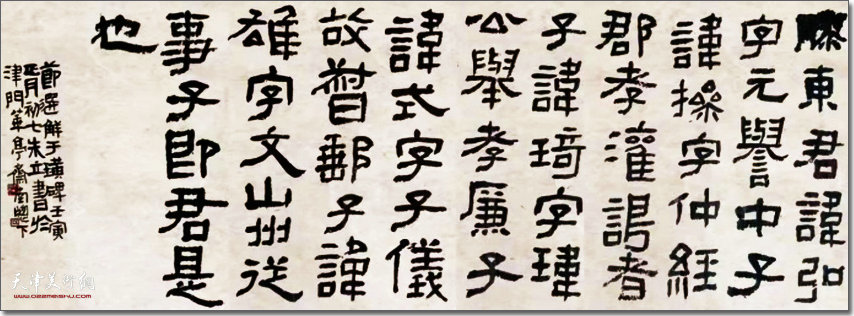 膠東君諱弘
字元譽中子
諱操字仲經
郡孝灌謁者
子諱琦字瑋
公舉孝廉子
諱式字子儀
故督郵子諱
雄字文山州從
事子即君是
也
節選鮮于璜碑壬寅
初七朱立書於
津門華亭齋南窗下
天津美術網
www.022meishu.com